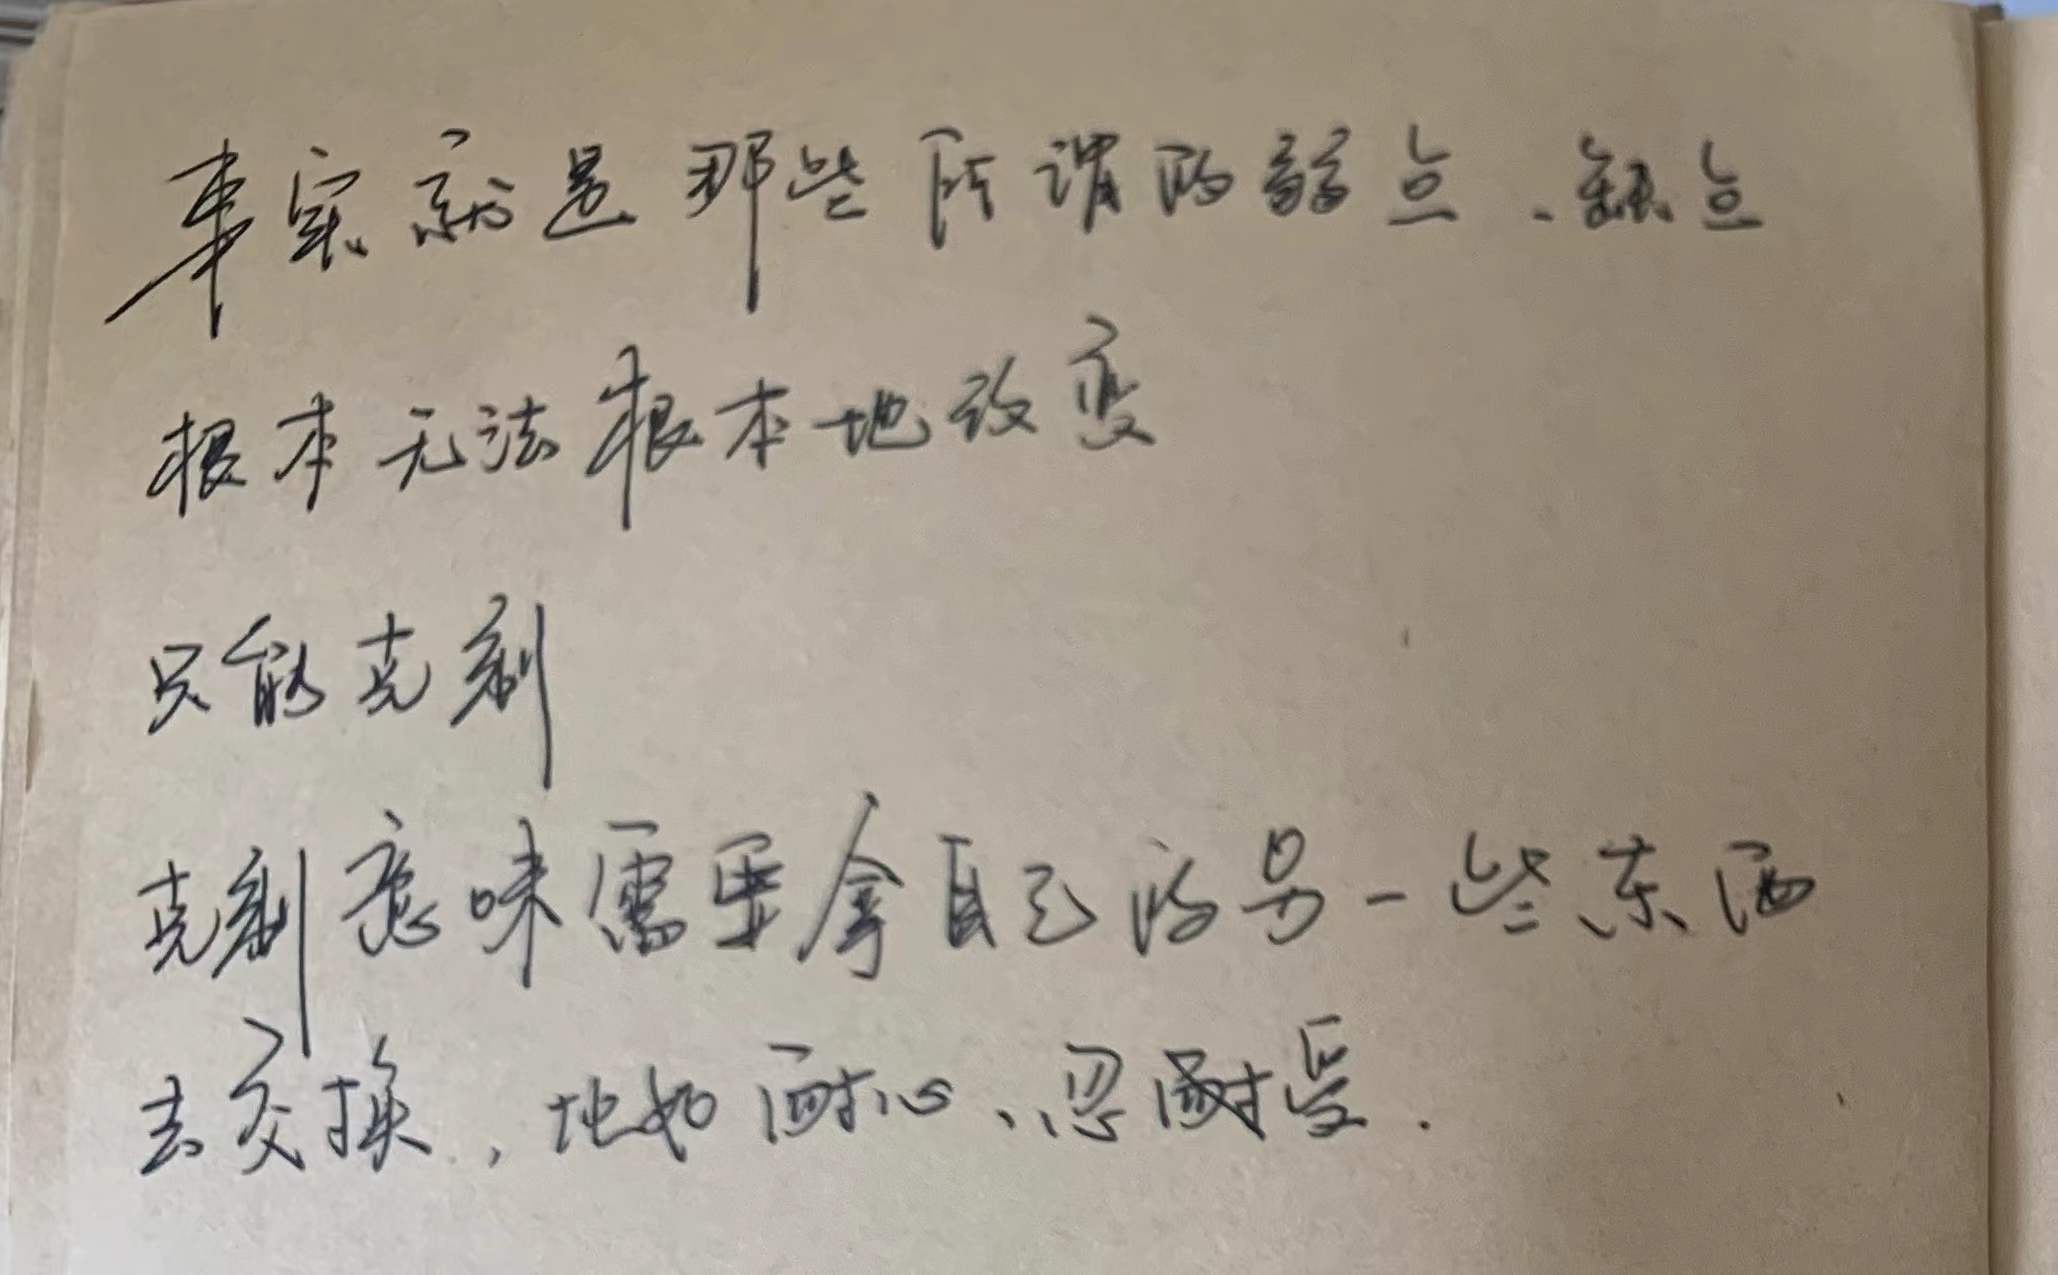 事实就是那些所谓的弱点、缺点
根本无法根本地改变
只能克制
克制意味需要拿自己的另一些东西
去交换，地如耐心、忍耐受.